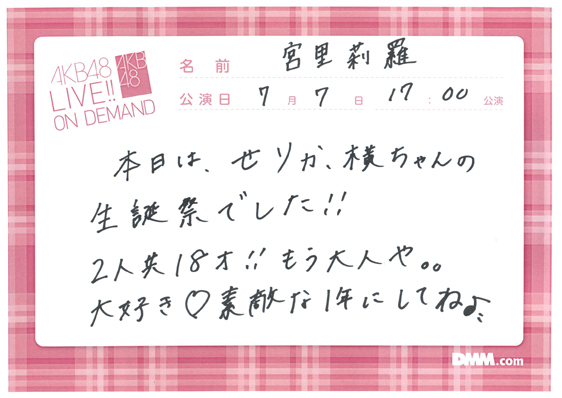 AKB48
LIVE!!
ON DEMAND
AKB
48
名前 宮里莉羅
公演日 7月7日 17:00公演
本日は、せりか、横ちゃんの
生誕祭でした!!
2人共18才!!もう大人や。。
大好き♡素敵な1年にしてねよ
DMM.com